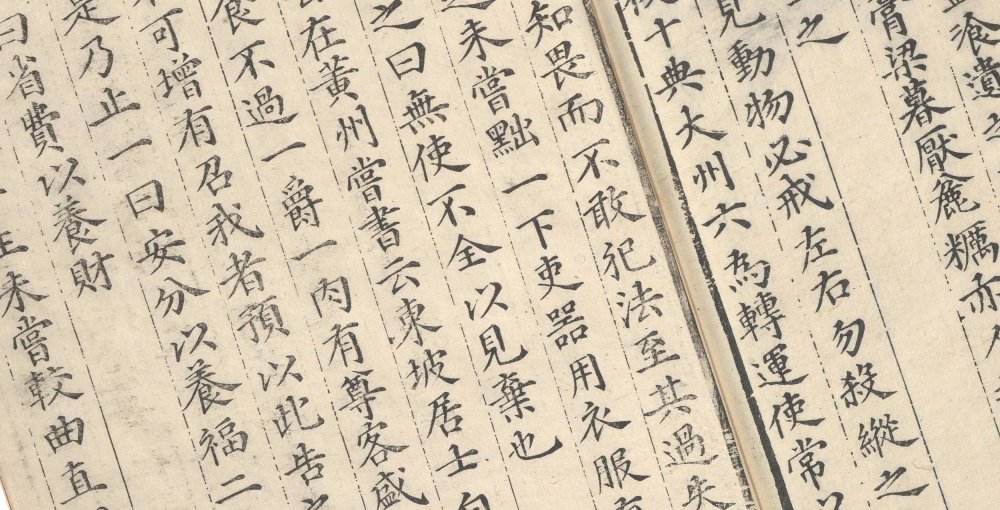 飡遺
膏粱暮厭麁糲亦
之
見動物必戒左右勿殺縱之
十典大州六為轉運使常以
知畏而不敢犯法至其過失
未嘗黜一下吏器用衣服
之曰無使不全以見棄也
在黃州嘗書云東坡居士自
食不過一爵一肉有尊客盛
可增有召我者預以此告之
是乃止一曰安分以養福二
曰省費以養財
未嘗較曲直